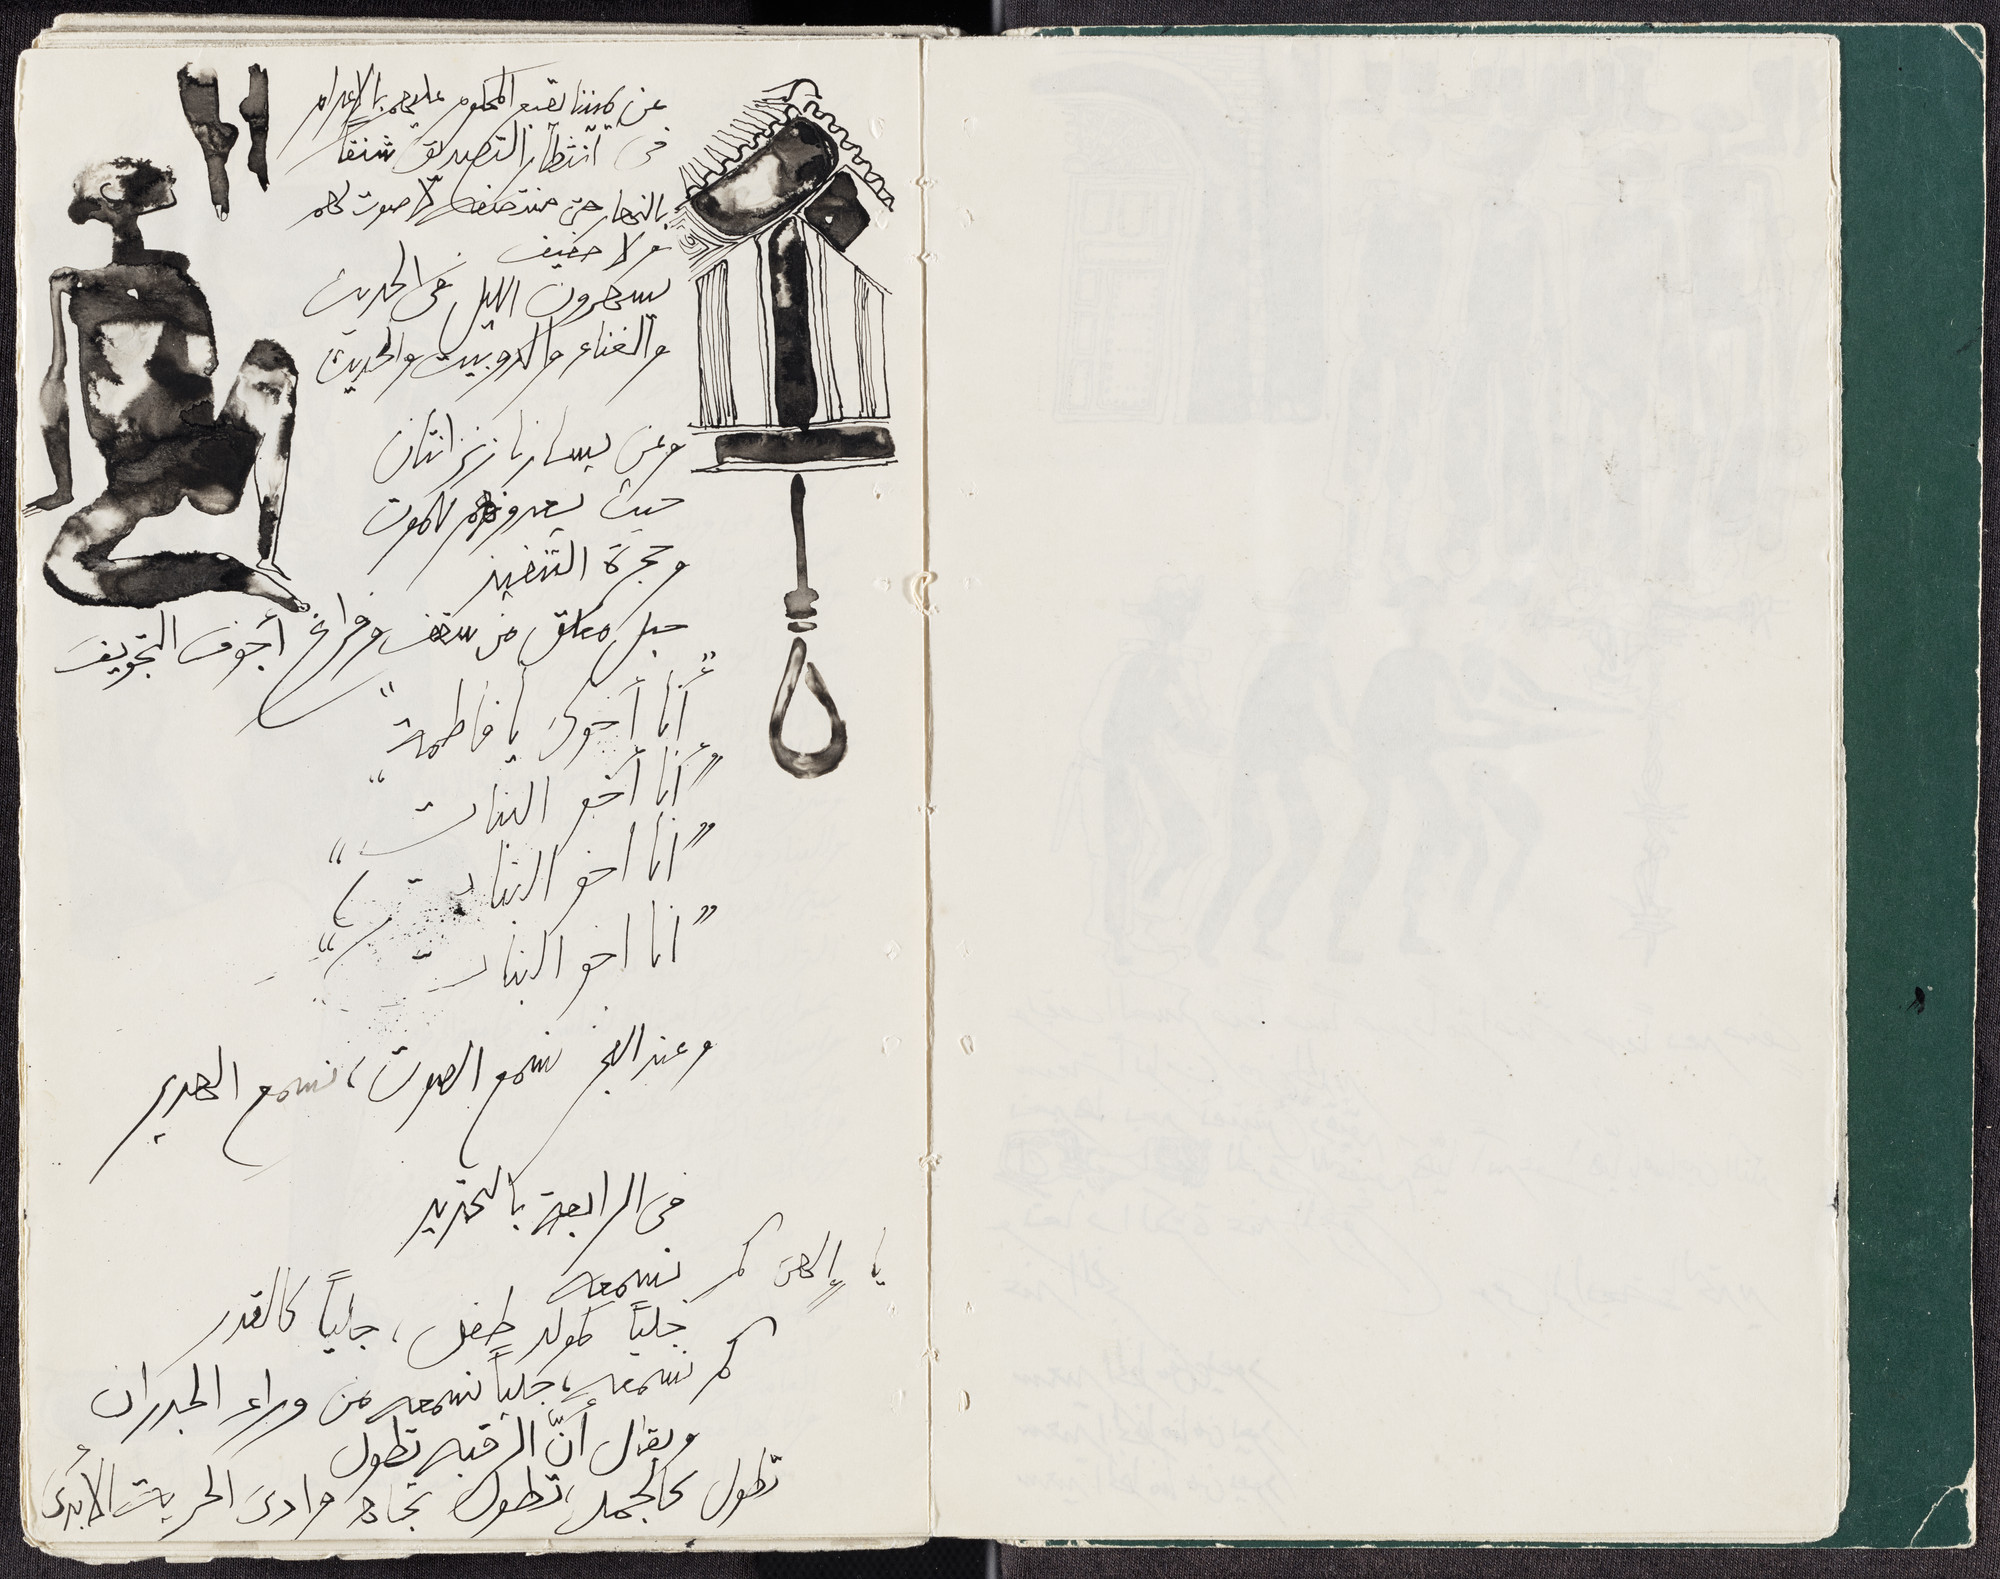 عن يميننا يقبع المحكوم عليهم بالإعدام
في انتظار التصديق شنقاً
بالنهار حتى منتصفه لا صوت لهم
ولا حفيف
يسهرون الليل في الحديث
والغناء والدوبيت والحديث
وعن يسارنا زنزانتان
حيث يعدونهم للموت
وحجرة التنفيذ
حبل معلق من سقف وفراغ أجوف التجويف
"أنا أخوك يا فاطمة"
"أنا أخو البنات"
"انا اخو البنات"
"انا اخو البنات"
وعند الفجر نسمع الصوت، نسمع الهدير
في الرابعة بالتحديد
يا إلهى كم نسمعه
جلياً كمولد طفل، جلياً كالقدر
كم نسمعه، جلياً نسمعه من وراء الجدران
ويقال أنّ الرقبه تطول
تطول كالجمل، تطول تجاه وادى الحرية الأبدى